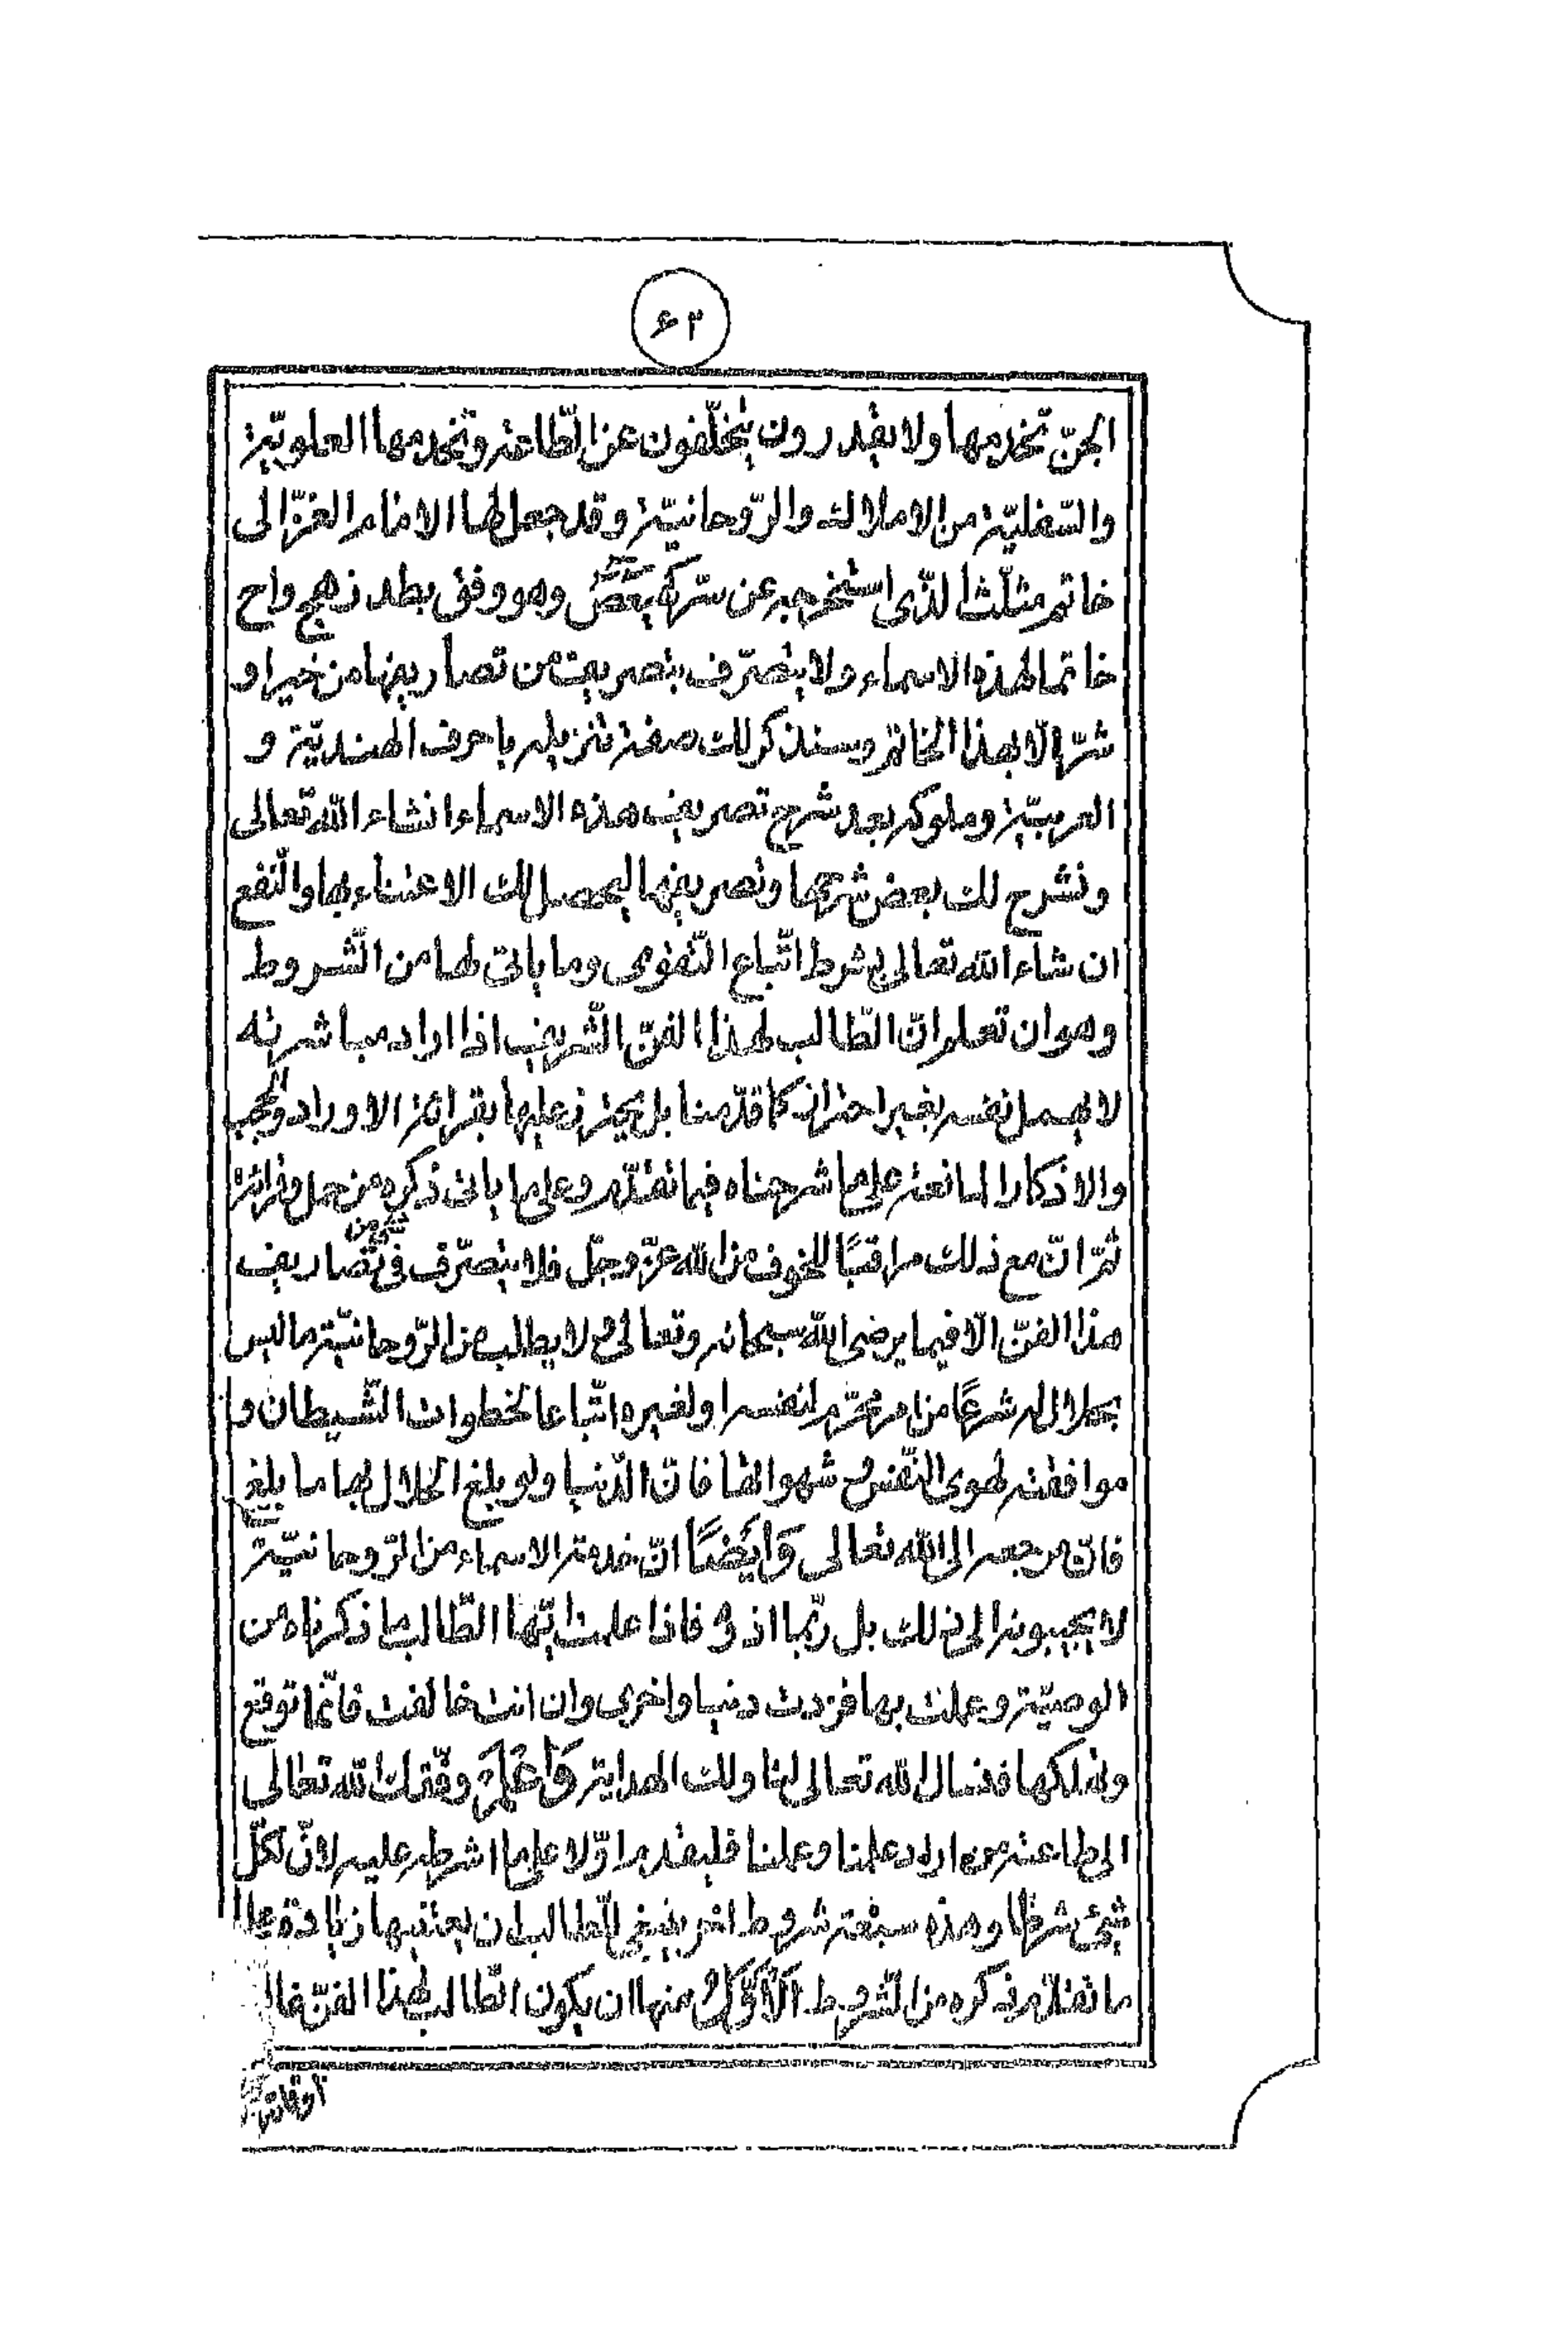 ۶۲
الجنّ تخدمها ولا يقدرون يتخلّفون عن الطّاعة وتخدمها العلويّة
والسّفليّة من الاملاك والرّوحانيّة وقد جعل لها الامام الغزّالى
خاتم مثلّثا لذى استخرجه عن سرّ كهيعص وهو وفق بطد زهج واح
خاتما لهذه الاسماء ولا يتصرّف بتصريف من تصاريفها من خير او
شرّ الّا بهذا الخاتم وسنذكر لك صفة تنزيله باحرف الهنديّة و
العربيّة وملوكه بعد شرح تصريف هذه الاسماء انشاء الله تعالى
ونشرح لك بعض شرحها وتصريفها ليحصل لك الاعتناء بها والنّفع
ان شاء الله تعالى بشرط اتّباع التّقوى وما ياتى لها من الشّروط
وهو ان تعلم انّ الطّالب لهذا الفنّ الشّريف اذا اراد مباشرته
لا يهمل نفسه بغير احتراز كما قدّمنا بل يحترز عليها بقرائة الاوراد والحجب
والاذكار المانعة على ما شرحناه فيما تقدّم وعلى ما ياتى ذكره من حمل وقرائة
ثمّ انّ مع ذلك مراقبًا للخوف من الله عزّ وجلّ فلا يتصرّف فى شىء من تصاريف
هذا الفنّ الّا فيما يرضى الله سبحانه وتعالى و لا يطلب من الرّوحانيّة ما ليس
بحلال له شرعًا من امر محرّم لنفسه او لغيره اتّباعا لخطوات الشّيطان و
موافقته لهوى النّفس و شهواتها فانّ الدّنيا ولو بلغ الحلال بها ما بلغ
فانّ مرجعه الى الله تعالى وَاَيضًا انّ خدمة الاسماء من الرّوحانيّة
لا يجيبونه الى ذلك بل ربّما اذوه فاذا علمت ايّها الطّالب ما ذكرناه من
الوصيّة وعملت بها فزدت دنيا واخرى وان انت خالفت فانّما توقع
وتهلكها فنسال الله تعالى لنا ولك الهداية وَاعْلَمْ وفّقك الله تعالى
الى طاعته من اراد علمنا وعملنا فليقدم اوّلا على ما اشرط عليه لانّ لكلّ
شىء شرطا وهذه سبعة شروط اخر ينبغى للطّالب ان يعتنى بها زيادة على
ما تقدّم ذكره من الشّروط اَلْاَوَّلُ منها ان يكون الطّالب لهذا الفنّ غالب
اوقاته